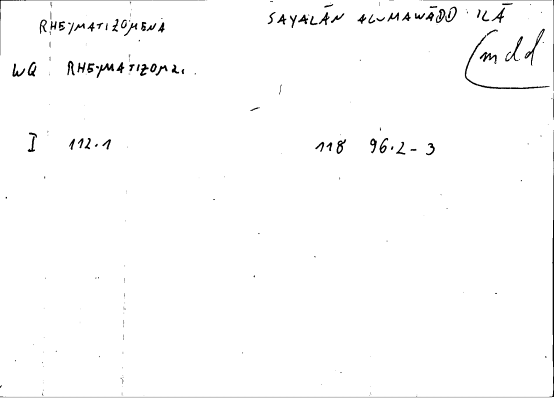 RHEYMATIZOMENA SAYALĀN ALMAWĀDD ILĀ
(mdd
WQ RHEYMATIZOM2.
I 112.1 118 96.2-3